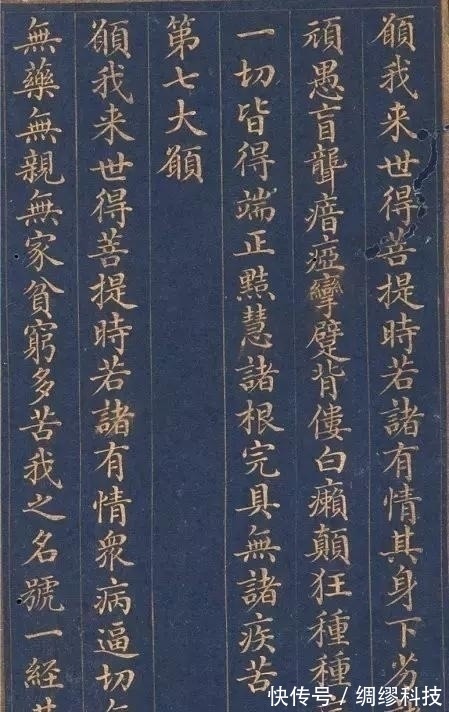 願我来世得菩提時若諸有情其身下劣
頑愚盲聾瘖瘂攣躄背僂白癩顛狂種種
一切皆得端正黠慧諸根完具無諸疾苦
第七大願
願我来世得菩提時若諸有情衆病逼切
無藥無親無家貧窮多苦我之名號一経
快传号/绸缪科技